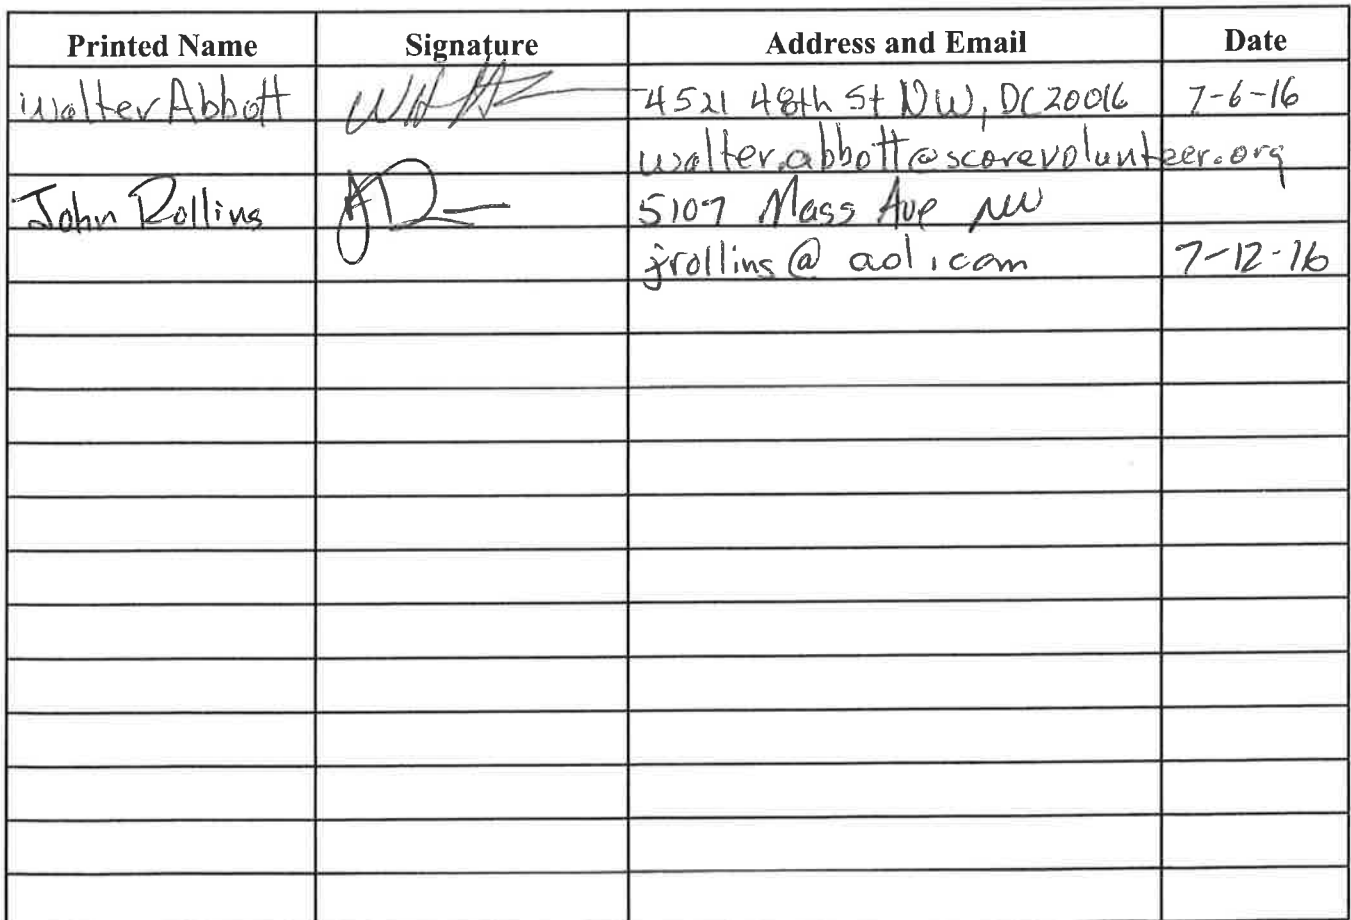 Printed Name Signature Address and Email Date
Walter Abbott 4521 48th St NW, DC 20016 7-6-16
walter.abbott@scorevolunteer.org
John Rollins 5107 Mass Ave NW
jrollins@aol.com 7-12-16